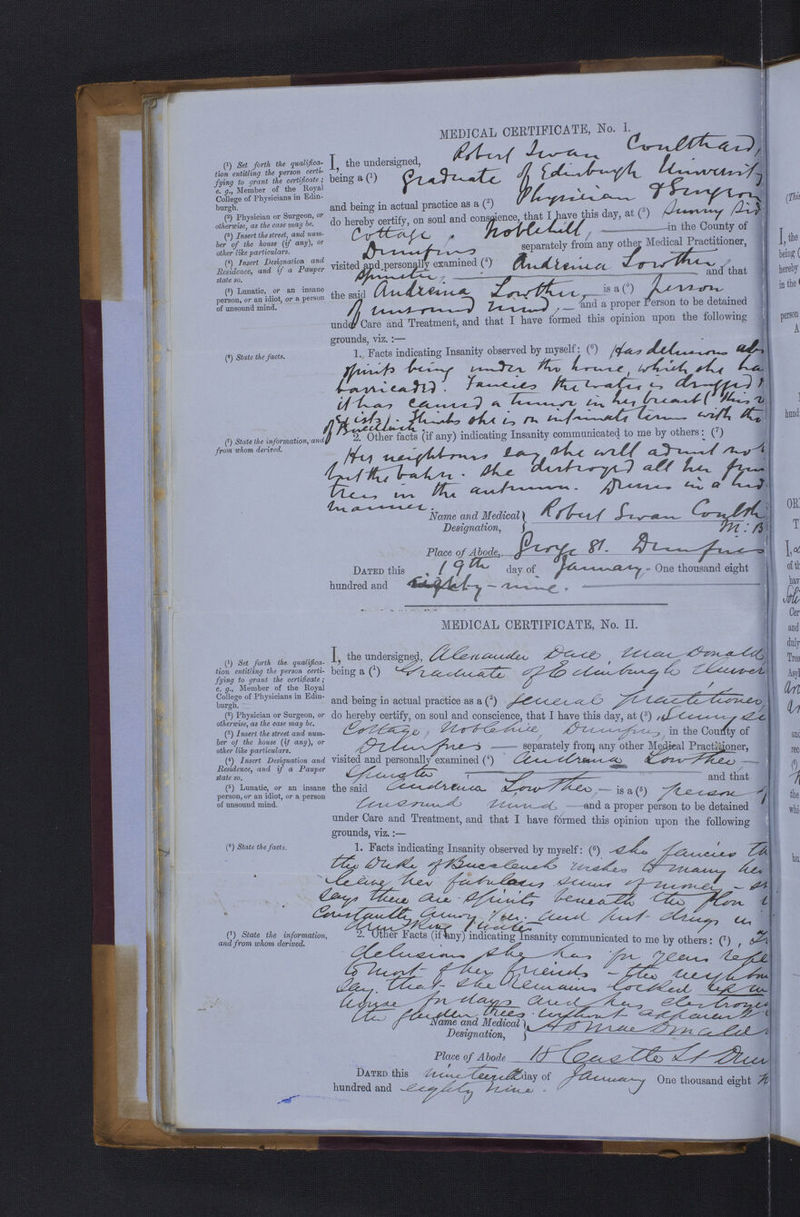 MEDICAL CERTIFICATE, No. I.
(¹) Set forth the qualifica-
tion entitling the person certi-
fying to grant the certificate;
e. g., Member of the Royal
College of Physicians in Edin-
burgh.
(²) Physician or Surgeon, or
otherwise, as the case may be.
(³) Insert the street, and num-
ber of the house (if any), or
other like particulars.
(⁴) Insert Designation and
Residence, and if a Pauper
state so.
(⁵) Lunatic, or an insane
person, or an idiot, or a person
of unsound mind.
(⁶) State the facts.
(⁷) State the information, and
from whom derived.
I, the undersigned, Robert Swan Coulthard,
being a (¹) Graduate of Edinburgh University
and being in actual practice as a (²) Physician & Surgeon
do hereby certify, on soul and conscience, that I have this day, at (³) Sunny Sid
Cottage, Noblehill, in the County of
Dumfries separately from any other Medical Practitioner,
visited and personally examined (⁴) Andreina Lowther
Spinster, and that
the said Andreina Lowther, is a (⁵) person
of unsound mind, and a proper Person to be detained
under Care and Treatment, and that I have formed this opinion upon the following
grounds, viz. :—
1. Facts indicating Insanity observed by myself: (⁶) Has delusions ab
spirits being under the house, which she ha
barricaded. Fancies the water is drugged &
it has caused a tumor in her breast (this
exists). Thinks she is on intimate terms with the
of Buccleuch
2. Other facts (if any) indicating Insanity communicated to me by others: (⁷)
Her neighbours say she will admit no
but the baker. She destroyed all her
trees in the autumn. Dresses in a
manner.
Name and Medical Designation, Robert Swan Coulth
M: B
Place of Abode, George St. Dumfries
DATED this 19th day of January - One thousand eight
hundred and eighty-nine.
MEDICAL CERTIFICATE, No. II.
(¹) Set forth the qualifica-
tion entitling the person certi-
fying to grant the certificate;
e. g., Member of the Royal
College of Physicians in Edin-
burgh.
(²) Physician or Surgeon, or
otherwise, as the case may be.
(³) Insert the street and num-
ber of the house (if any), or
other like particulars.
(⁴) Insert Designation and
Residence, and if a Pauper
state so.
(⁵) Lunatic, or an insane
person, or an idiot, or a person
of unsound mind.
(⁶) State the facts.
(⁷) State the information,
and from whom derived.
I, the undersigned, Alexander MacDonald
being a (¹) Graduate of Edinburgh Univer
and being in actual practice as a (²) General Practitioner,
do hereby certify, on soul and conscience, that I have this day, at (³) Sunny Si
Cottage, Noblehill, Dumfries, in the County of
Dumfries — separately from any other Medical Practitioner,
visited and personally examined (⁴) Andreana Lowther —
Spinster and that
the said Andreana Lowther, — is a (⁵) person of
unsound mind — and a proper person to be detained
under Care and Treatment, and that I have formed this opinion upon the following
grounds, viz. :—
1. Facts indicating Insanity observed by myself: (⁶) She fancies th
the Duke of Buccleuch wishes to marry her
leave her fabulous sums of money - sh
says there are spirits beneath the floor
constantly annoy her and put drugs in
drinking water
2. Other Facts (if any) indicating Insanity communicated to me by others: (⁷)
delusions she has for years
to most of her friends - the neighbou
say that she remains locked up in
house for days and has destroyed
the garden trees without apparent
Name and Medical Designation, A D MacDonald
Place of Abode 18 Castle St Dum
DATED this nineteenth day of January One thousand eight
hundred and eighty nine.
(This
I, the
being (
hereby
in the
person
A
hund
OR
T
of th
hav
Cer
and
duly
Asyl
and
rec
the
whi